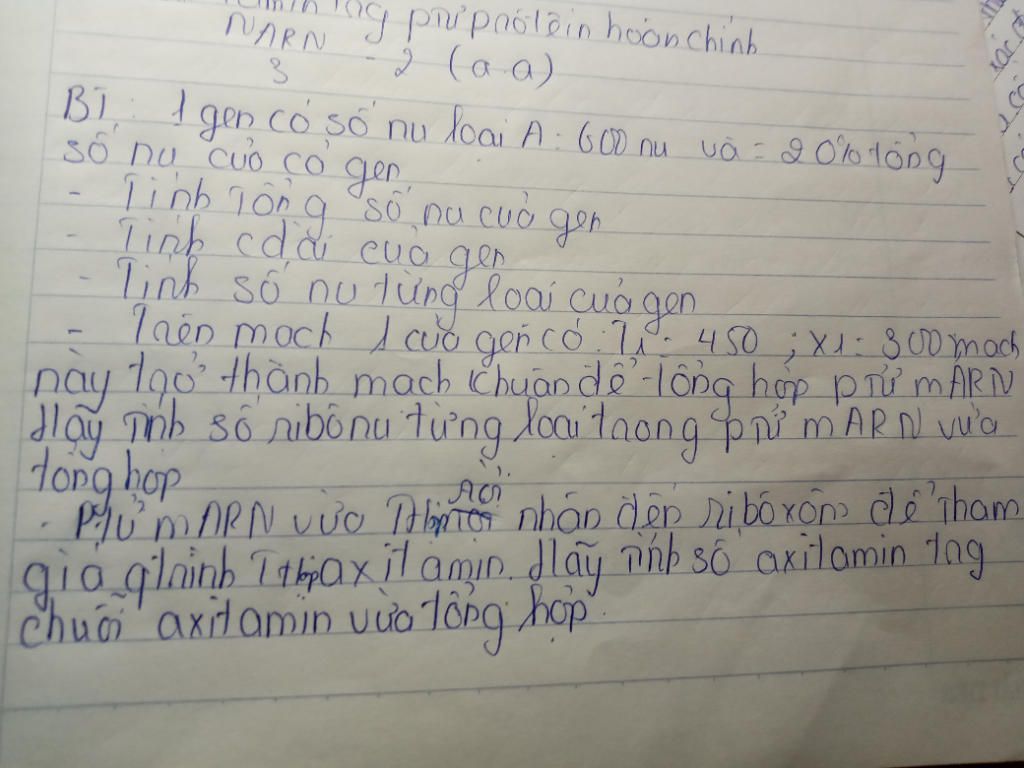 ptử prôtêin hoàn chỉnh
NARN
3 - 2 (a.a)
BT: 1 gen có số nu loại A = 600 nu và = 20% tổng
số nu của cả gen
- Tính Tổng số nu của gen
- Tính cdài của gen
- Tính số nu từng loại của gen
- Trên mạch 1 của gen có: T1 = 450 ; X1 = 300 mạch
này tạo thành mạch khuân để tổng hợp ptử mARN
Hãy tính số ribônu từng loại trong ptử mARN vừa
tổng hợp
- Ptử mARN vừa Thợp rời nhân đến ribôxôm để tham
gia qtrình Tthợp axit amin. Hãy tính số axit amin tng
chuỗi axit amin vừa tổng hợp.